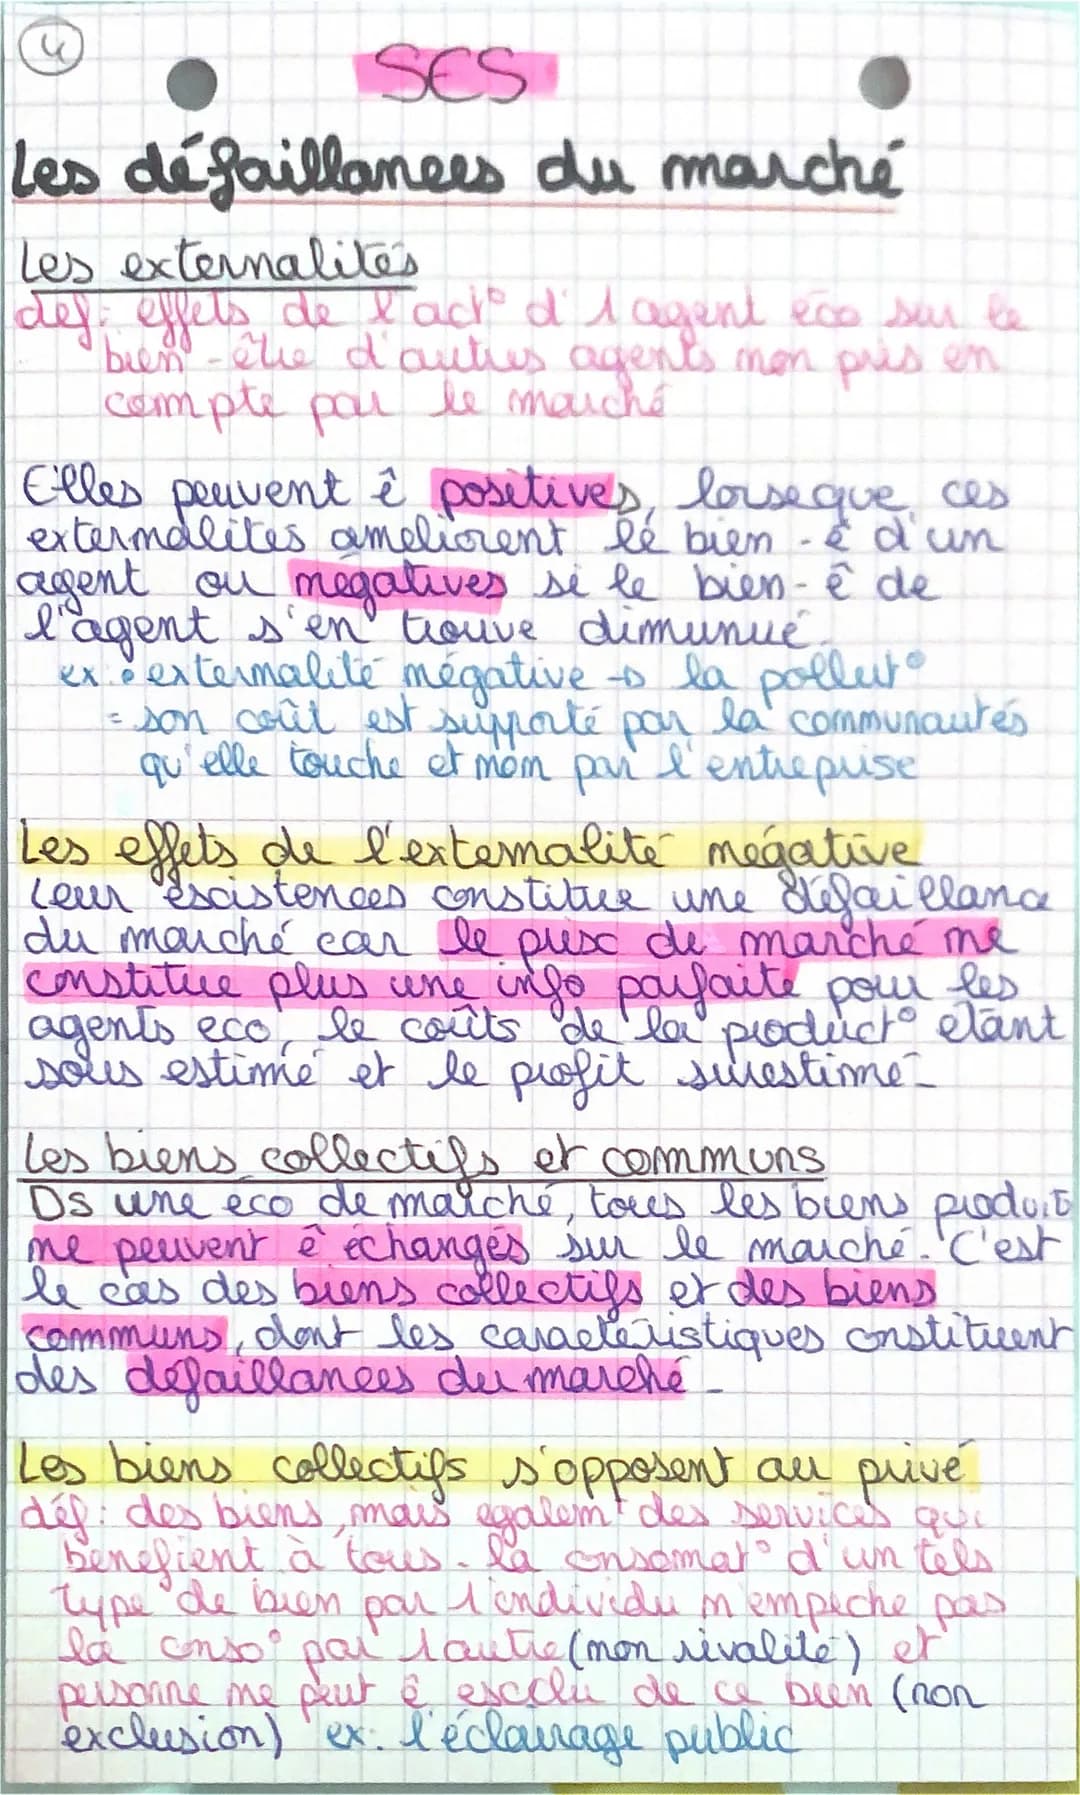 4
SES
Les défaillances du marché
Les externalités
def: effets de l'act° d'1 agent éco sur le
bien-être d'autres agents non pris en
compte par le marché
Elles peuvent ê positives, lorseque ces
externalités ameliorent le bien-ê d'un
agent ou négatives si le bien-ê de
l'agent s'en trouve dimunué
ex: externalité négative → la pollut°
= son coût est supporté par la communautés
qu'elle touche et non par l'entreprise
Les effets de l'externalité négative
Leur existences constitue une défaillance
du marché car le prix de marché ne
constitue plus une info parfaite pour les
agents eco, le coûts de la product° étant
sous estimé et le profit surestimé-
Les biens collectifs et communs
Ds une éco de marché, tous les biens produit
ne peuvent ê échangés sur le marché. C'est
le cas des biens collectifs et des biens
communs, dont les caractéristiques constituent
des défaillances du marché-
Les biens collectifs s'opposent au privé
déf: des biens, mais egalemt des services qui
benefient à tous. la consomat° d'un tels
type de bien par 1 individu n'empeche pas
la conso° par 1 autre (non rivalité) et
personne ne peut ê excclu de ce bien (non
exclusion) ex: l'éclairage public